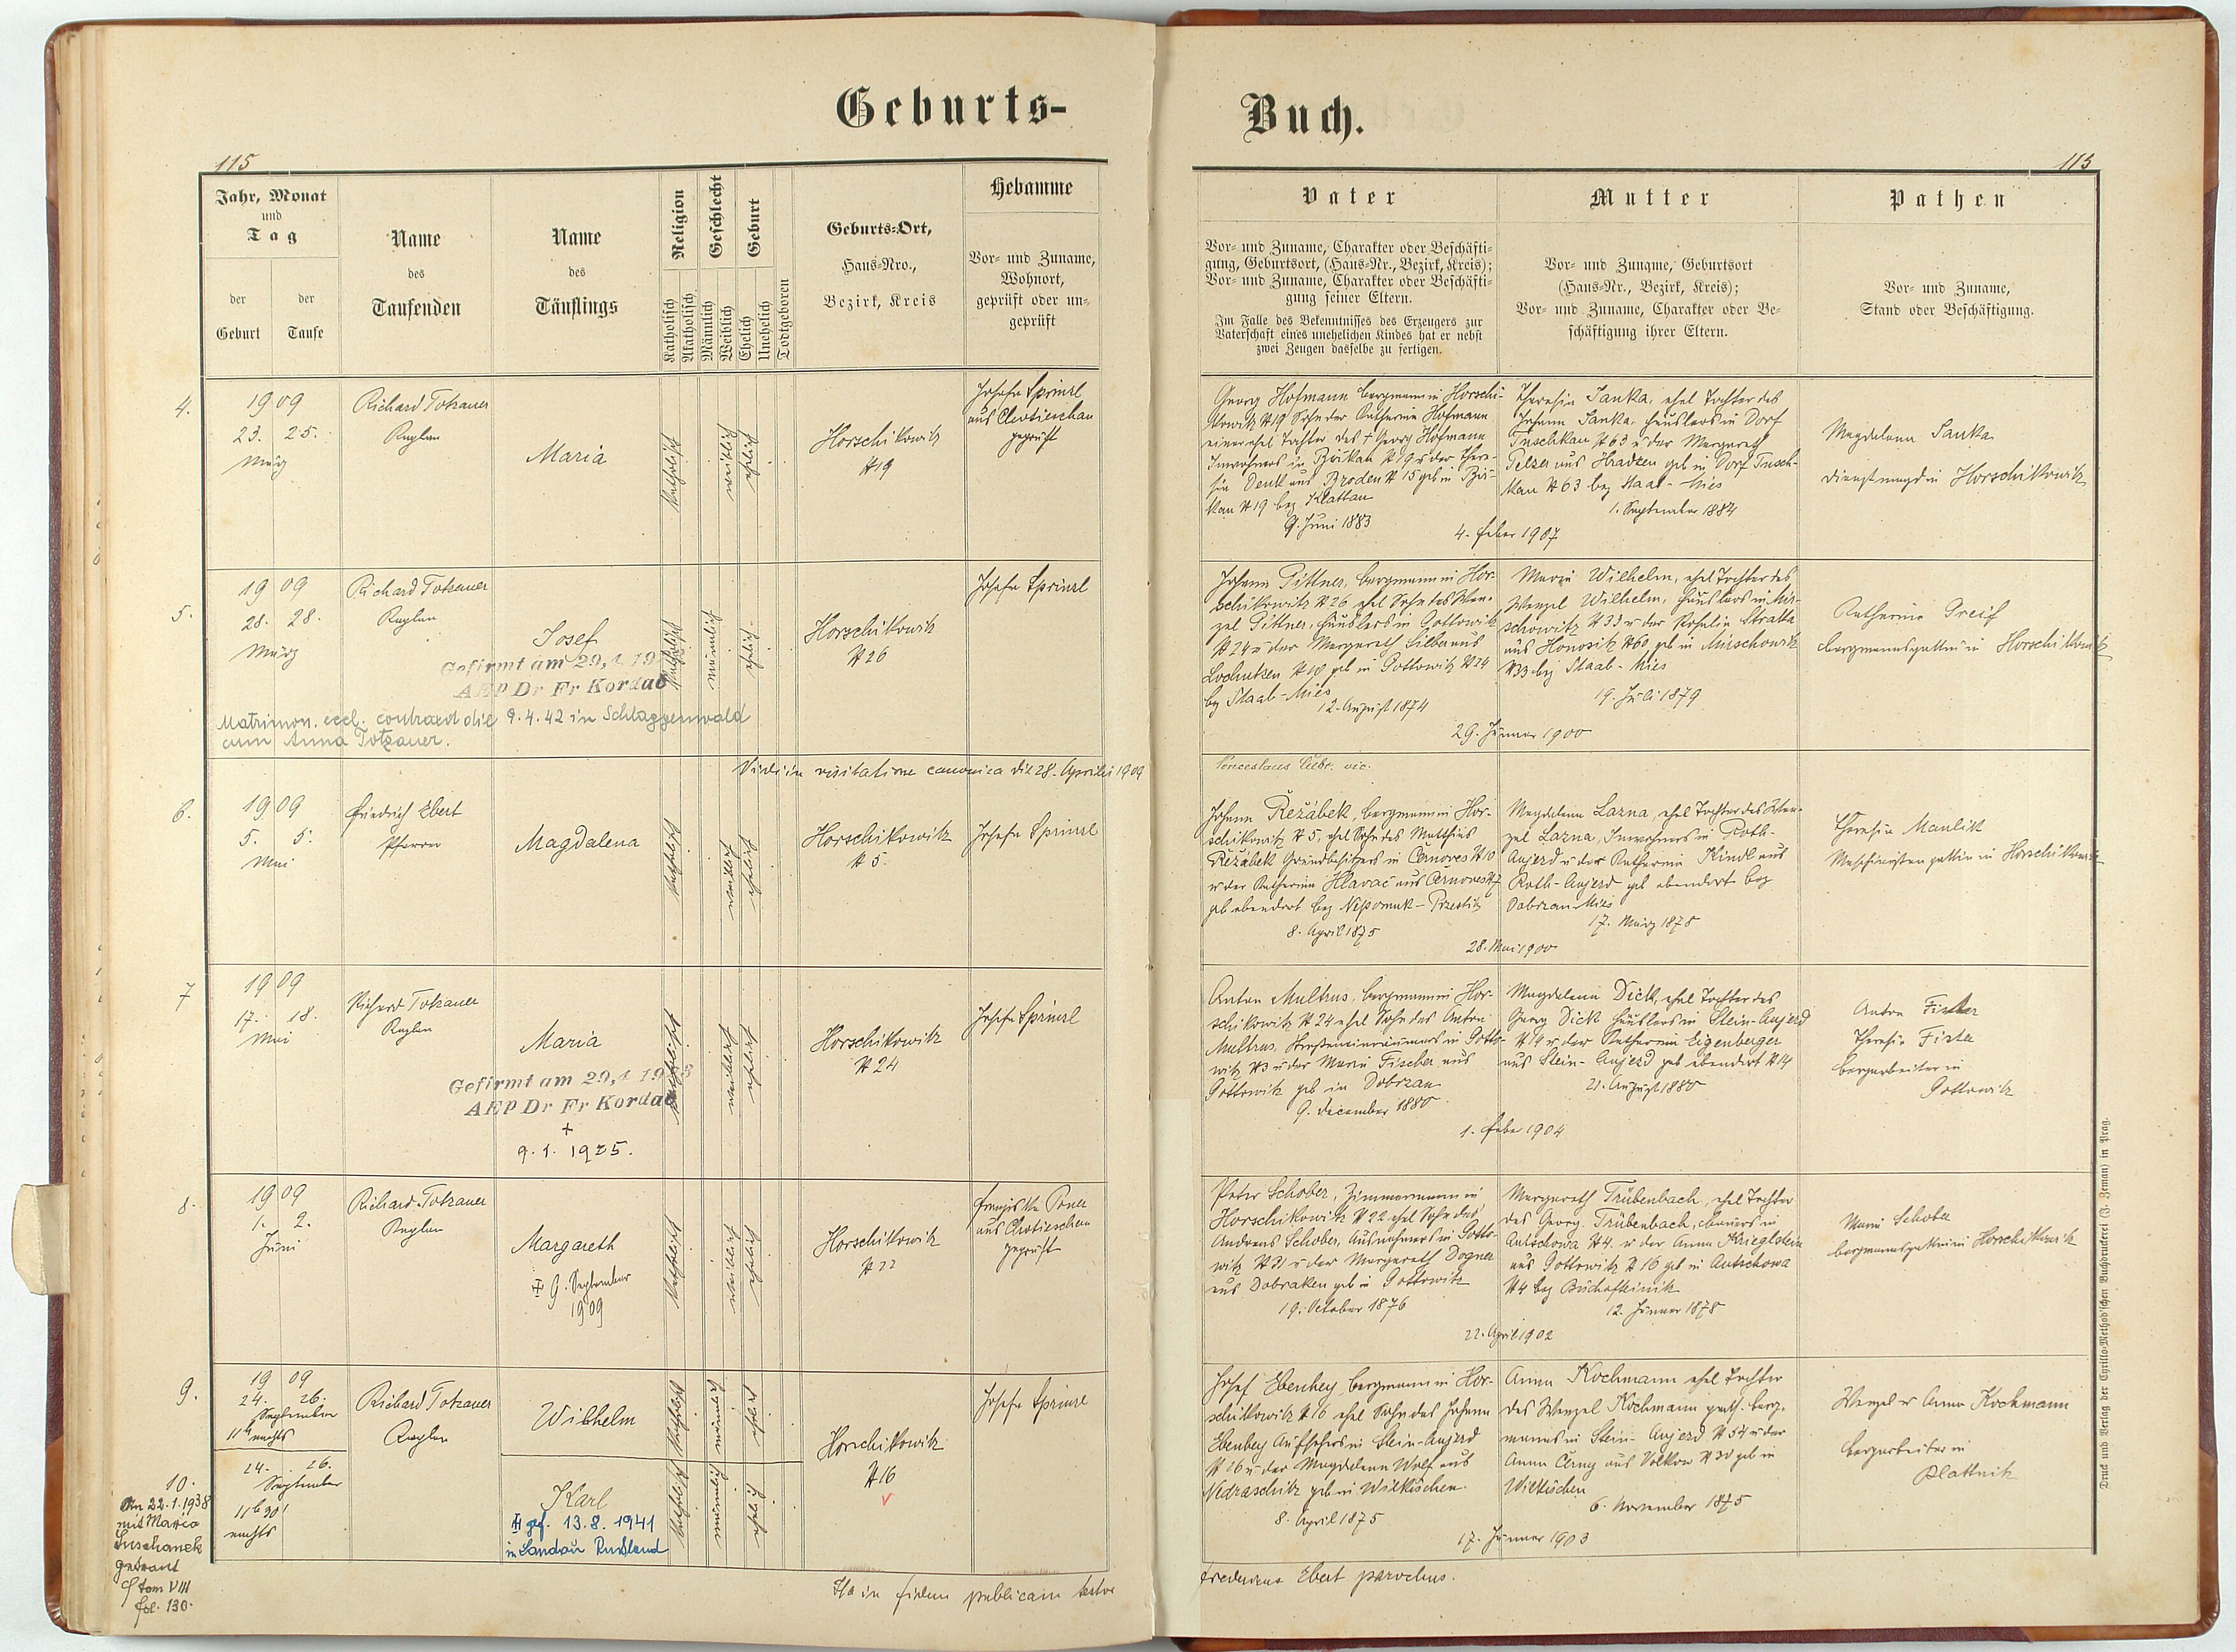 Geburts-
Buch.
115
115
Jahr, Monat
und
Tag
der
Geburt
der
Taufe
Name
des
Taufenden
Name
des
Täuflings
Religion
Katholisch
Akatholisch
Geschlecht
Männlich
Weiblich
Geburt
Ehelich
Unehelich
Todtgeboren
Geburts-Ort,
Haus-Nro.,
Bezirk, Kreis
Hebamme
Vor- und Zuname,
Wohnort,
geprüft oder un-
geprüft
Vater
Vor- und Zuname, Charakter oder Beschäfti-
gung, Geburtsort, (Haus-Nr., Bezirk, Kreis);
Vor- und Zuname, Charakter oder Beschäfti-
gung seiner Eltern.
Im Falle des Bekenntnisses des Erzeugers zur
Vaterschaft eines unehelichen Kindes hat er nebst
zwei Zeugen dasselbe zu fertigen.
Mutter
Vor- und Zuname, Geburtsort
(Haus-Nr., Bezirk, Kreis);
Vor- und Zuname, Charakter oder Be-
schäftigung ihrer Eltern.
Pathen
Vor- und Zuname,
Stand oder Beschäftigung.
4.
1909
23. 25.
März
Richard Totzauer
Kaplan
Maria
katholisch
weiblich
ehelich
Horschikowitz
N 19
Josefa Sprinzl
aus Chotieschau
geprüft
Georg Hofmann Bergmann in Horschi-
kowitz N 19 Sohn der Katharina Hofmann
einer ehel Tochter des † Georg Hofmann
Inwohners in N 19 u der There-
sia aus N 15 geb in
kau N 19 bez Klattau
9. Juni 1883
Theresia Sanka, ehel Tochter des
Johann Sanka, Häuslers in Dorf
Tuschkau N 63 u der Margareth
Pelzer aus Hradzen geb in Dorf Tusch-
kau N 63 bez Staab - Mies
1. September 1884
4. Feber 1907
Magdalena Sanka
Dienstmagd in Horschikowitz
5.
1909
28. 28.
März
Richard Totzauer
Kaplan
Josef
Gefirmt am 29,4 19
AEP Dr Fr Kordač
Matrimon. eccl. contraxit die 9.4.42 in Schlaggenwald
cum Anna Totzauer.
katholisch
männlich
ehelich
Horschikowitz
N 26
Josefa Sprinzl
Johann Pittner, Bergmann in Hor-
schikowitz N 26 ehel Sohn des Wen-
zel Pittner, Häuslers in Gottowitz
N 24 u der Margareth Silber aus
Lochutzen N 18 geb in Gottowitz N 24
bez Staab - Mies
12. August 1874
Maria Wilhelm, ehel Tochter des
Wenzel Wilhelm, Häuslers in Mir-
schowitz N 33 u der Rosalia
aus Honositz N 60 geb in Mirschowitz
N 33 bez Staab - Mies
19. Juli 1879
29. Jänner 1900
Katharina Greif
Bergmannsgattin in Horschikowitz
Vidi in visitatione canonica die 28. Aprilis 1909
Venceslaus vic.
6.
1909
5. 5.
Mai
Friedrich Ebert
Pfarrer
Magdalena
katholisch
weiblich
ehelich
Horschikowitz
N 5.
Josefa Sprinzl
Johann Řežábek, Bergmann in Hor-
schikowitz N 5, ehel Sohn des Matthias
Řežábek Grundbesitzers in Černoves N 10
u der Katharina Hlaváč aus Černoves N 7
geb ebendort bez Nepomuk - Przestitz
8. April 1875
Magdalena Lazna, ehel Tochter des Wen-
zel Lazna, Inwohners in Roth-
Aujezd u der Katharina Kindl aus
Roth-Aujezd geb ebendort bez
Dobrzan Mies
17. März 1878
28. Mai 1900
Theresia Maulik
Maschinistengattin in Horschikowitz
7
1909
17. 18.
Mai
Richard Totzauer
Kaplan
Maria
Gefirmt am 29,4 19
AEP Dr Fr Kordač
+
9. 1. 1925.
katholisch
weiblich
ehelich
Horschikowitz
N 24
Josefa Sprinzl
Anton Multrus, Bergmann in Hor-
schikowitz N 24 ehel Sohn des Anton
Multrus, Straßeneinräumers in Gotto-
witz N 3 u der Maria Fischer aus
Gottowitz geb in Dobrzan
9. December 1880
Magdalena Dick, ehel Tochter des
Georg Dick Häuslers in Stein-Aujezd
N 19 u der Katharina Eigenberger
aus Stein-Aujezd geb ebendort N 14
21. August 1880
1. Feber 1904
Anton
Theresia
Bergarbeiter in
Gottowitz
8.
1909
1. 2.
Juni
Richard Totzauer
Kaplan
Margareth
9. September
1909
katholisch
weiblich
ehelich
Horschikowitz
N 22
Franziska
aus Chotieschau
geprüft
Peter Schober, Zimmermann in
Horschikowitz N 22 ehel Sohn des
Andreas Schober, Ausnehmers in Gotto-
witz N 21 u der Margareth Dogner
aus Dobraken geb in Gottowitz
19. October 1876
Margareth Trübenbach, ehel Tochter
des Georg Trübenbach, Bauers in
Autschowa N 4. u der Anna Krieglstein
aus Gottowitz N 16 geb in Autschowa
N 4 bez Bischofteinitz
12. Jänner 1878
22. April 1902
Maria Schober
Bergmannsgattin in Horschikowitz
9.
1909
24. 26.
September
11 h nachts
Richard Totzauer
Kaplan
Wilhelm
katholisch
männlich
ehelich
Horschikowitz
N 16
Josefa Sprinzl
Josef Ebenhey, Bergmann in Hor-
schikowitz N 16 ehel Sohn des Johann
Ebenhey Aufsehers in Stein-Aujezd
N 26 u der Magdalena Wolf aus
Nedraschitz geb in Wilkischen.
8. April 1875
Anna Kochmann ehel Tochter
des Wenzel Kochmann Berg-
manns in Stein-Aujezd N 54 u der
Anna aus Wolkow N 30 geb in
Wilkischen
6. November 1875
17. Jänner 1903
Wenzel u Anna Kochmann
Bergarbeiter in
Blattnitz
10.
24. 26.
September
11 h 30'
nachts
Karl
gef. 13. 8. 1941
in Landau Rußland
katholisch
männlich
ehelich
Am 22.1.1938
mit Maria
Suschanek
getraut
cf tom VIII
fol. 130.
Ita in fidem publicam testor
Fredericus Ebert parochus.
Druck und Verlag der Cyrillo-Method'schen Buchdruckerei (J. Zeman) in Prag.